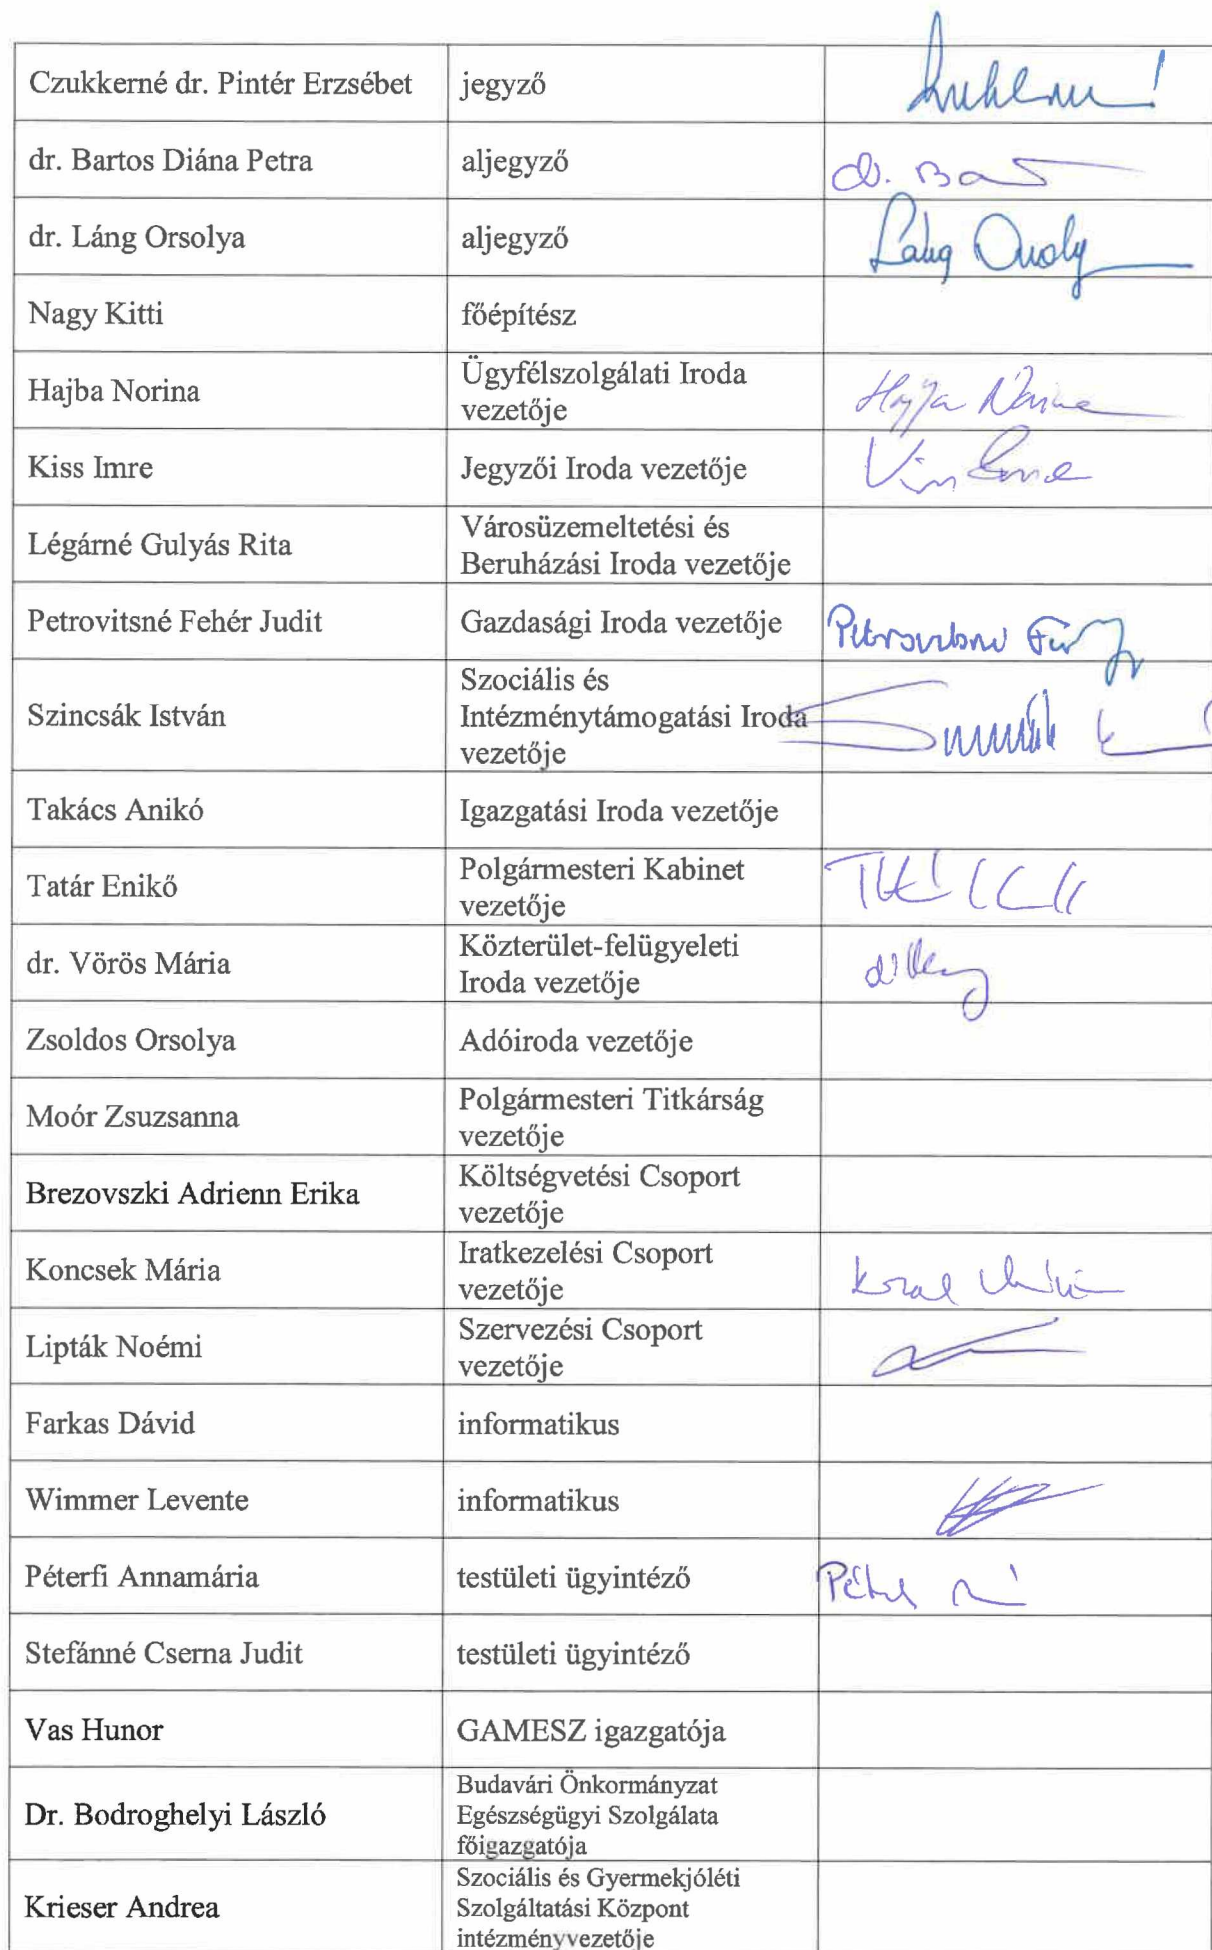 Czukkerné dr. Pintér Erzsébet
jegyző
dr. Bartos Diána Petra
aljegyző
dr. Láng Orsolya
aljegyző
Láng Orsoly
Nagy Kitti
főépítész
Hajba Norina
Ügyfélszolgálati Iroda
vezetője
Kiss Imre
Jegyzői Iroda vezetője
Légárné Gulyás Rita
Városüzemeltetési és
Beruházási Iroda vezetője
Petrovitsné Fehér Judit
Gazdasági Iroda vezetője
Szincsák István
Szociális és
Intézménytámogatási Iroda
vezetője
Takács Anikó
Igazgatási Iroda vezetője
Tatár Enikő
Polgármesteri Kabinet
vezetője
dr. Vörös Mária
Közterület-felügyeleti
Iroda vezetője
Zsoldos Orsolya
Adóiroda vezetője
Moór Zsuzsanna
Polgármesteri Titkárság
vezetője
Brezovszki Adrienn Erika
Költségvetési Csoport
vezetője
Koncsek Mária
Iratkezelési Csoport
vezetője
Lipták Noémi
Szervezési Csoport
vezetője
Farkas Dávid
informatikus
Wimmer Levente
informatikus
Péterfi Annamária
testületi ügyintéző
Stefánné Cserna Judit
testületi ügyintéző
Vas Hunor
GAMESZ igazgatója
Dr. Bodroghelyi László
Budavári Önkormányzat
Egészségügyi Szolgálata
főigazgatója
Krieser Andrea
Szociális és Gyermekjóléti
Szolgáltatási Központ
intézményvezetője